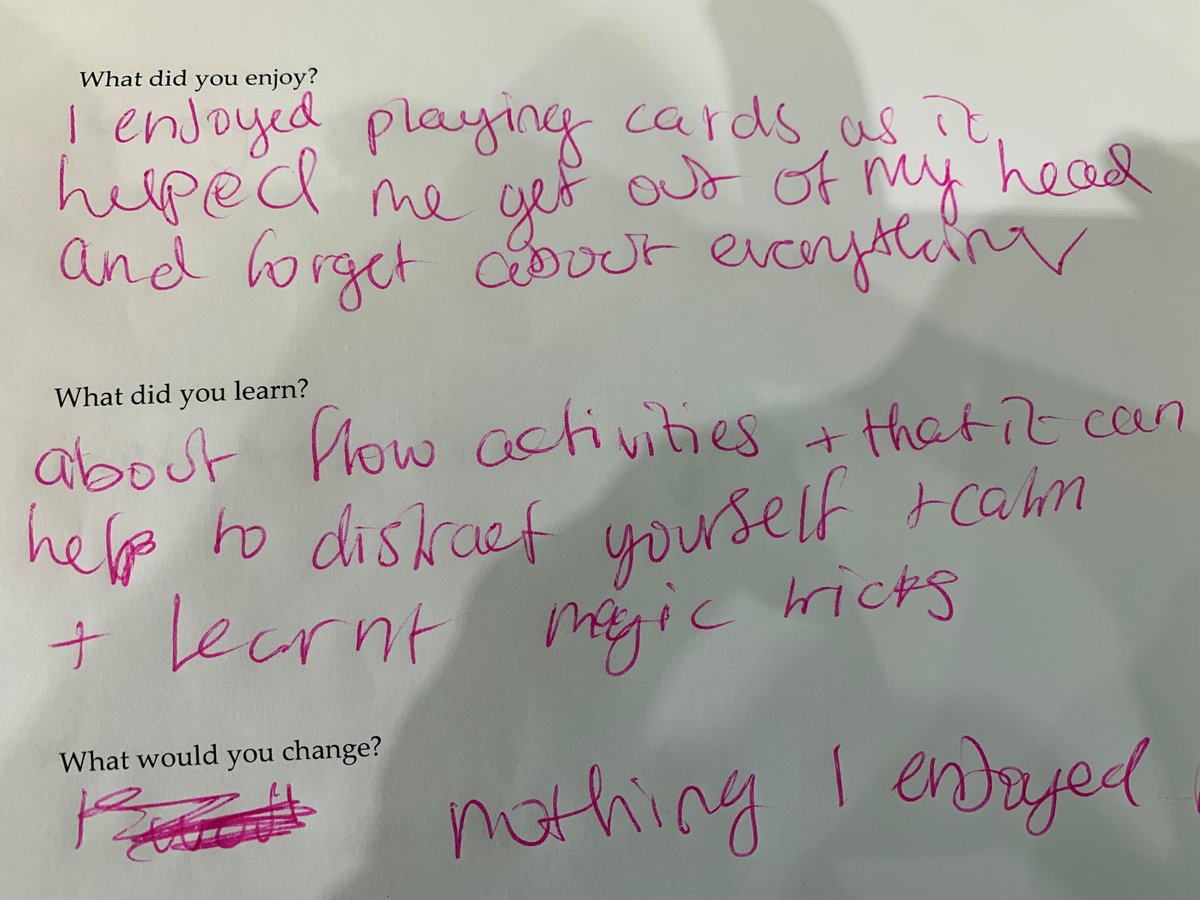 What did you enjoy?
I enjoyed playing cards as it
helped me get out of my head
and forget about everything
What did you learn?
about flow activities + that it can
help to distract yourself + calm
+ learnt magic tricks
What would you change?
nothing I enjoyed